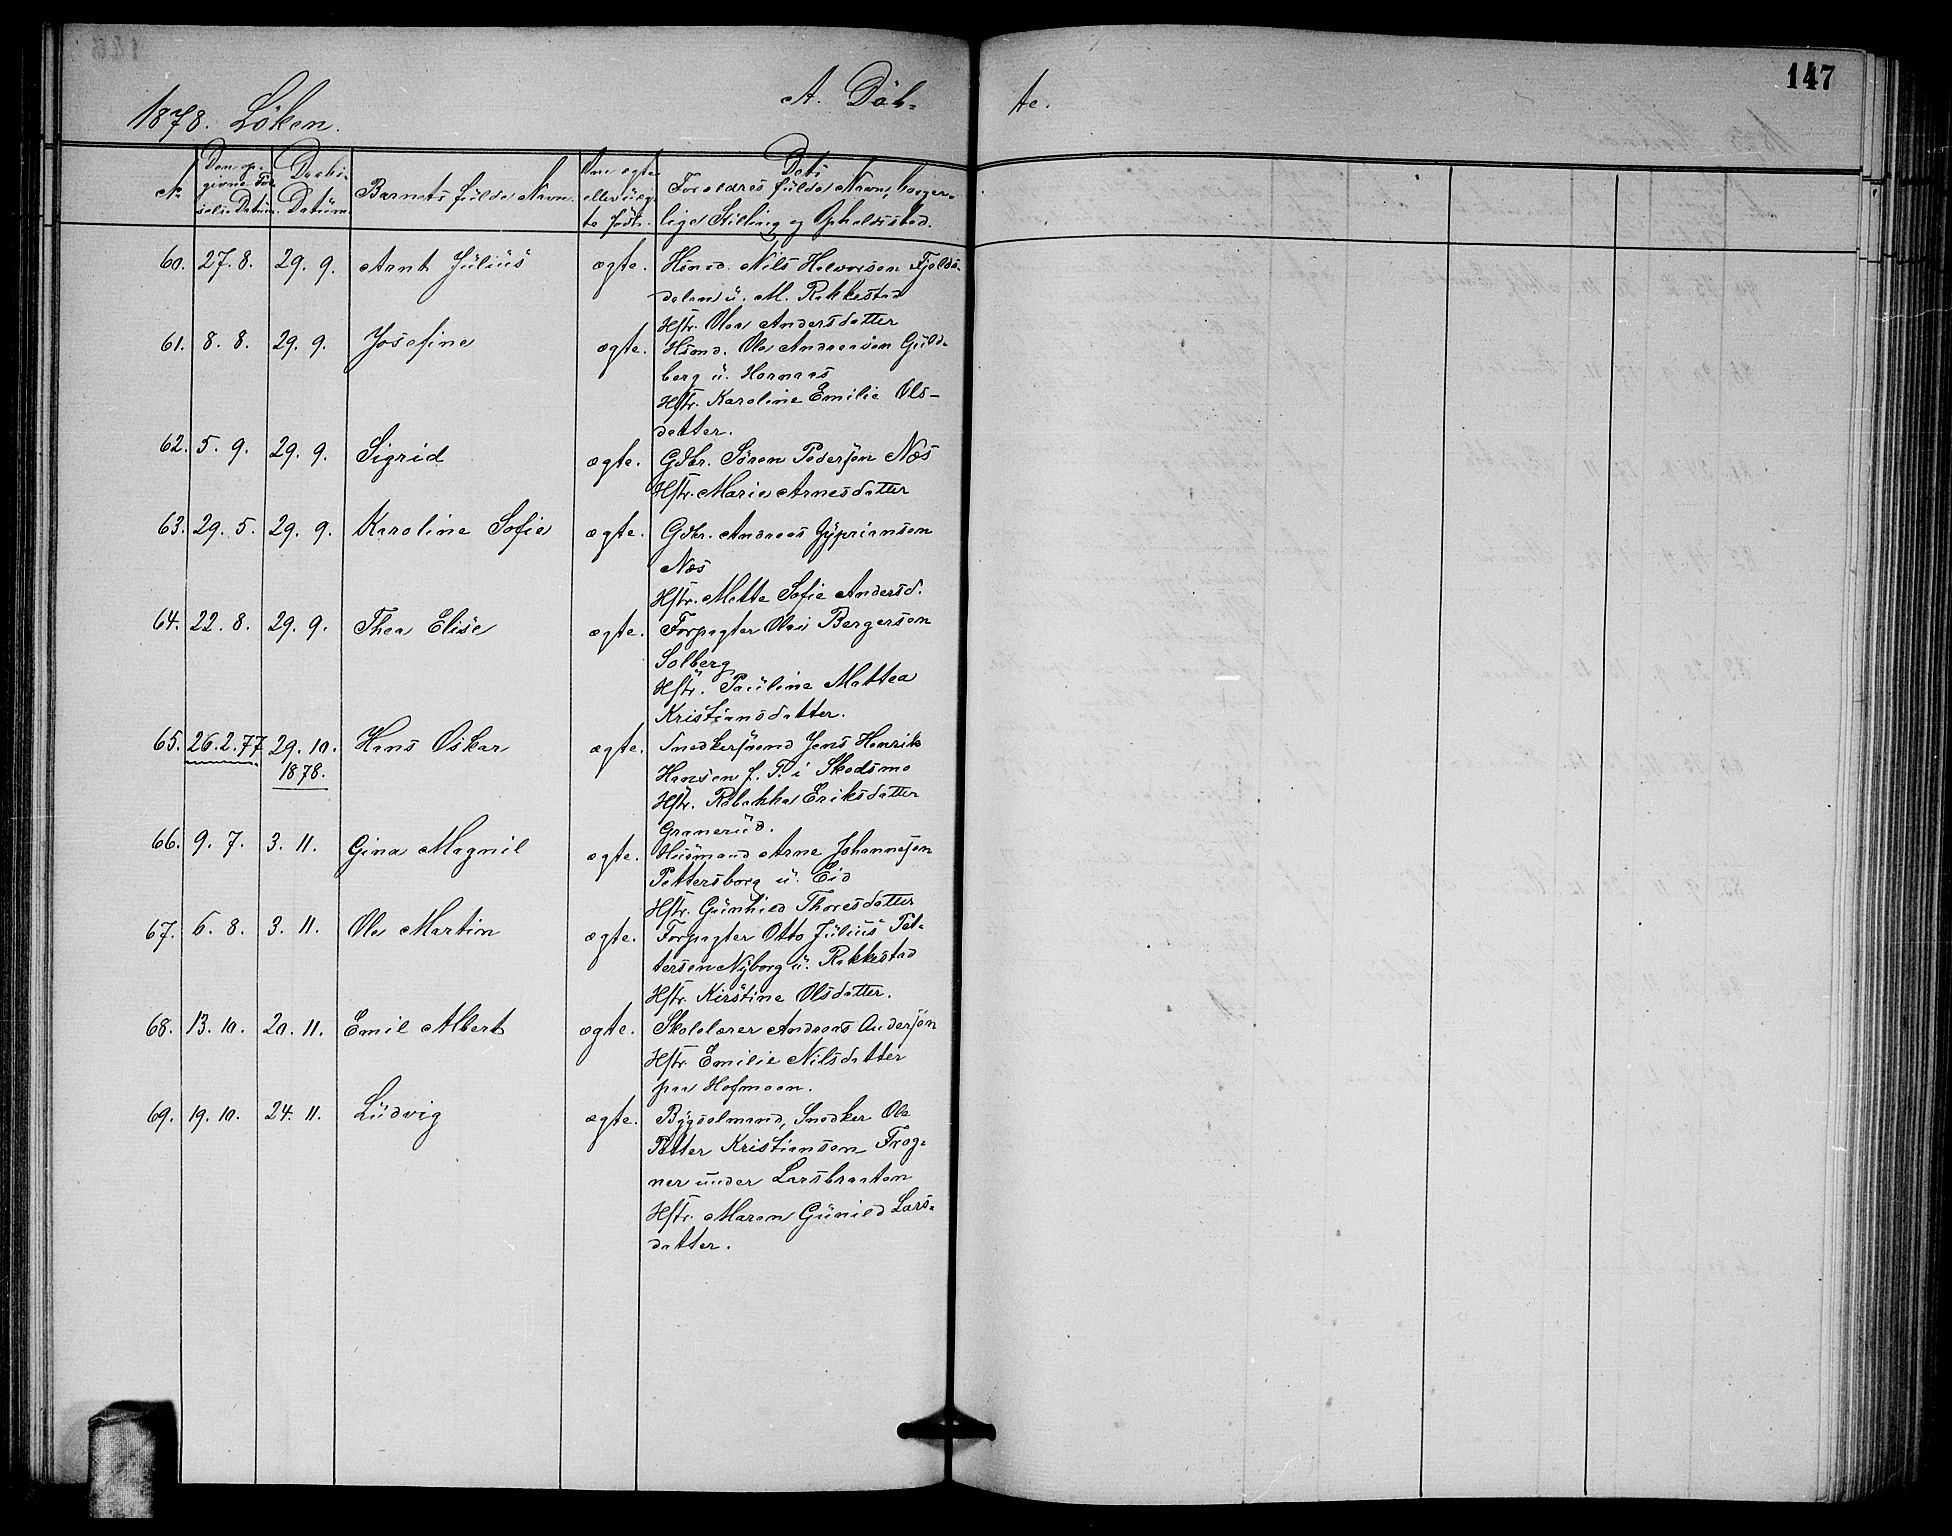 147
1878. Löken. A. Döb- te.
No. Den op- givne Föd- sels-Datum. Daabs- Datum. Barnets fulde Navn. Om ægte eller uæg- te født. Dets Forældres fulde Navn, borger- lige Stilling og Opholdssted.
60. 27. 8. 29. 9. Arnt Julius ægte. Hsmd. Nils Halvorsen Fjelds-
dalen u. M. Rakkestad
Hstr. Olea Andersdatter
61. 8. 8. 29. 9. Josefine ægte. Hsmd. Ole Andreasen Guld-
berg u. Hornæs
Hstr. Karoline Emilie Ols-
datter.
62. 5. 9. 29. 9. Sigrid ægte. Gdbr. Søren Pedersen Næs
Hstr. Marie Arnesdatter
63. 29. 5. 29. 9. Karoline Sofie ægte. Gdbr. Andreas Gypriansen
Næs
Hstr. Mette Sofie Andersd.
64. 22. 8. 29. 9. Thea Elise ægte. Forpagter Olai Bergersen
Solberg
Hstr. Pauline Mattea
Kristiansdatter.
65. 26. 2. 77 29. 10. Hans Oskar ægte. Snedkersvend Jens Henrik
1878. Hansen f. T. i Skedsmo
Hstr. Rebekka Eriksdatter
Granerud.
66. 9. 7. 3. 11. Gina Magnil ægte. Husmand Arne Johannesen
Pettersborg u. Eid
Hstr. Gunhild Thoresdatter
67. 6. 8. 3. 11. Ole Martin ægte. Forpagter Otto Julius Pet-
tersen Nyborg u. Rakkestad
Hstr. Kirstine Olsdatter.
68. 13. 10. 20. 11. Emil Albert ægte. Skolelærer Andreas Andersen
Hstr. Emilie Nilsdatter
paa Hofmoen.
69. 19. 10. 24. 11. Ludvig ægte. Bygselmand, Snedker Ole
Petter Kristiansen Frog-
ner under Larsbraaten
Hstr. Maren Gunild Lars-
datter.